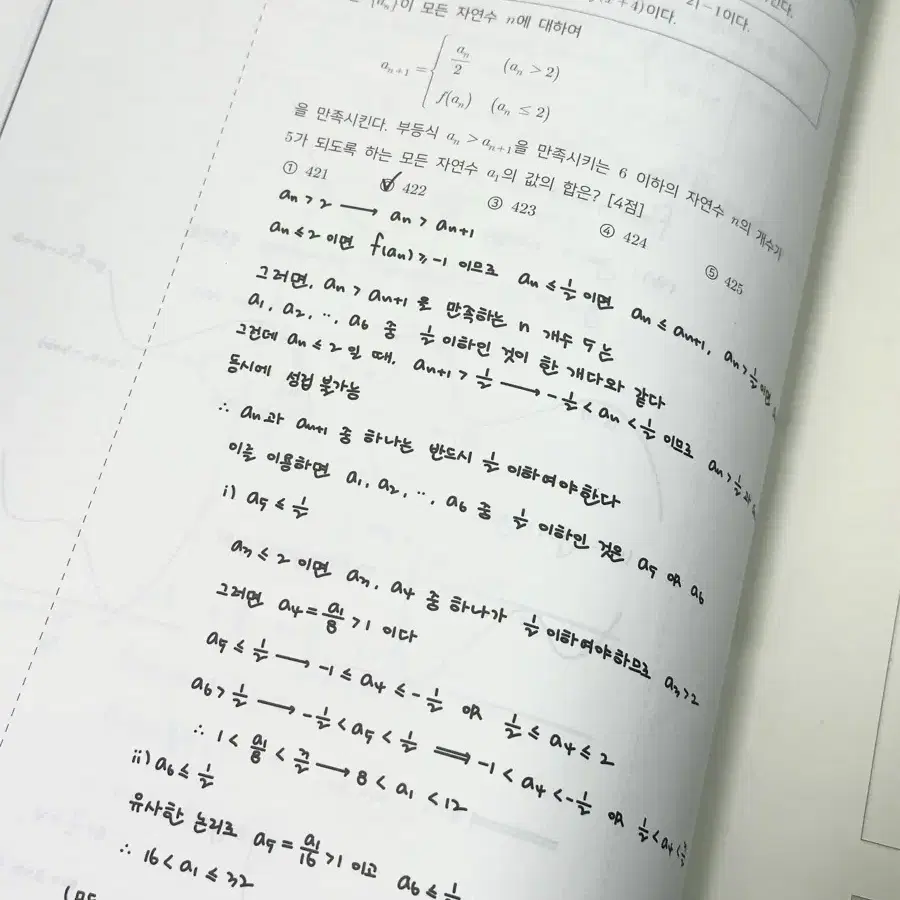 (x+4)이다.
2t-1이다.
{aₙ}이 모든 자연수 n에 대하여
aₙ₊₁ = { aₙ/2 (aₙ > 2)
f(aₙ) (aₙ ≤ 2)
을 만족시킨다. 부등식 aₙ > aₙ₊₁을 만족시키는 6 이하의 자연수 n의 개수가
5가 되도록 하는 모든 자연수 a₁의 값의 합은? [4점]
① 421 ② 422 ③ 423 ④ 424 ⑤ 425
aₙ > 2 → aₙ > aₙ₊₁
aₙ ≤ 2 이면 f(aₙ) ≥ -1 이므로 aₙ ≤ 1/2 이면 aₙ ≤ aₙ₊₁, aₙ > 1/2 이면
그러면, aₙ > aₙ₊₁ 를 만족하는 n 개수 5는
a₁, a₂, ‥, a₆ 중 1/2 이하인 것이 한 개다와 같다
그런데 aₙ ≤ 2 일 때, aₙ₊₁ > 1/2 → -1/2 < aₙ < 1/2 이므로 aₙ > 1/2 과
동시에 성립 불가능
∴ aₙ과 aₙ₊₁ 중 하나는 반드시 1/2 이하여야한다
이를 이용하면 a₁, a₂, ‥, a₆ 중 1/2 이하인 것은 a₅ OR a₆
i) a₅ ≤ 1/2
a₃ ≤ 2 이면 a₃, a₄ 중 하나가 1/2 이하여야하므로 a₃ > 2
그러면 a₄ = a₁/8 > 1 이다
a₅ ≤ 1/2 → -1 ≤ a₄ ≤ -1/2 OR 1/2 ≤ a₄ ≤ 2
a₆ > 1/2 → -1/2 < a₅ < 1/2 ⟹ -1 < a₄ < -1/2 OR 1/2 < a₄ < 3/2
∴ 1 < a₁/8 < 3/2 → 8 < a₁ < 12
ii) a₆ ≤ 1/2
유사한 논리로 a₅ = a₁/16 > 1 이고 a₆ ≤ 1/2
∴ 16 < a₁ ≤ 32